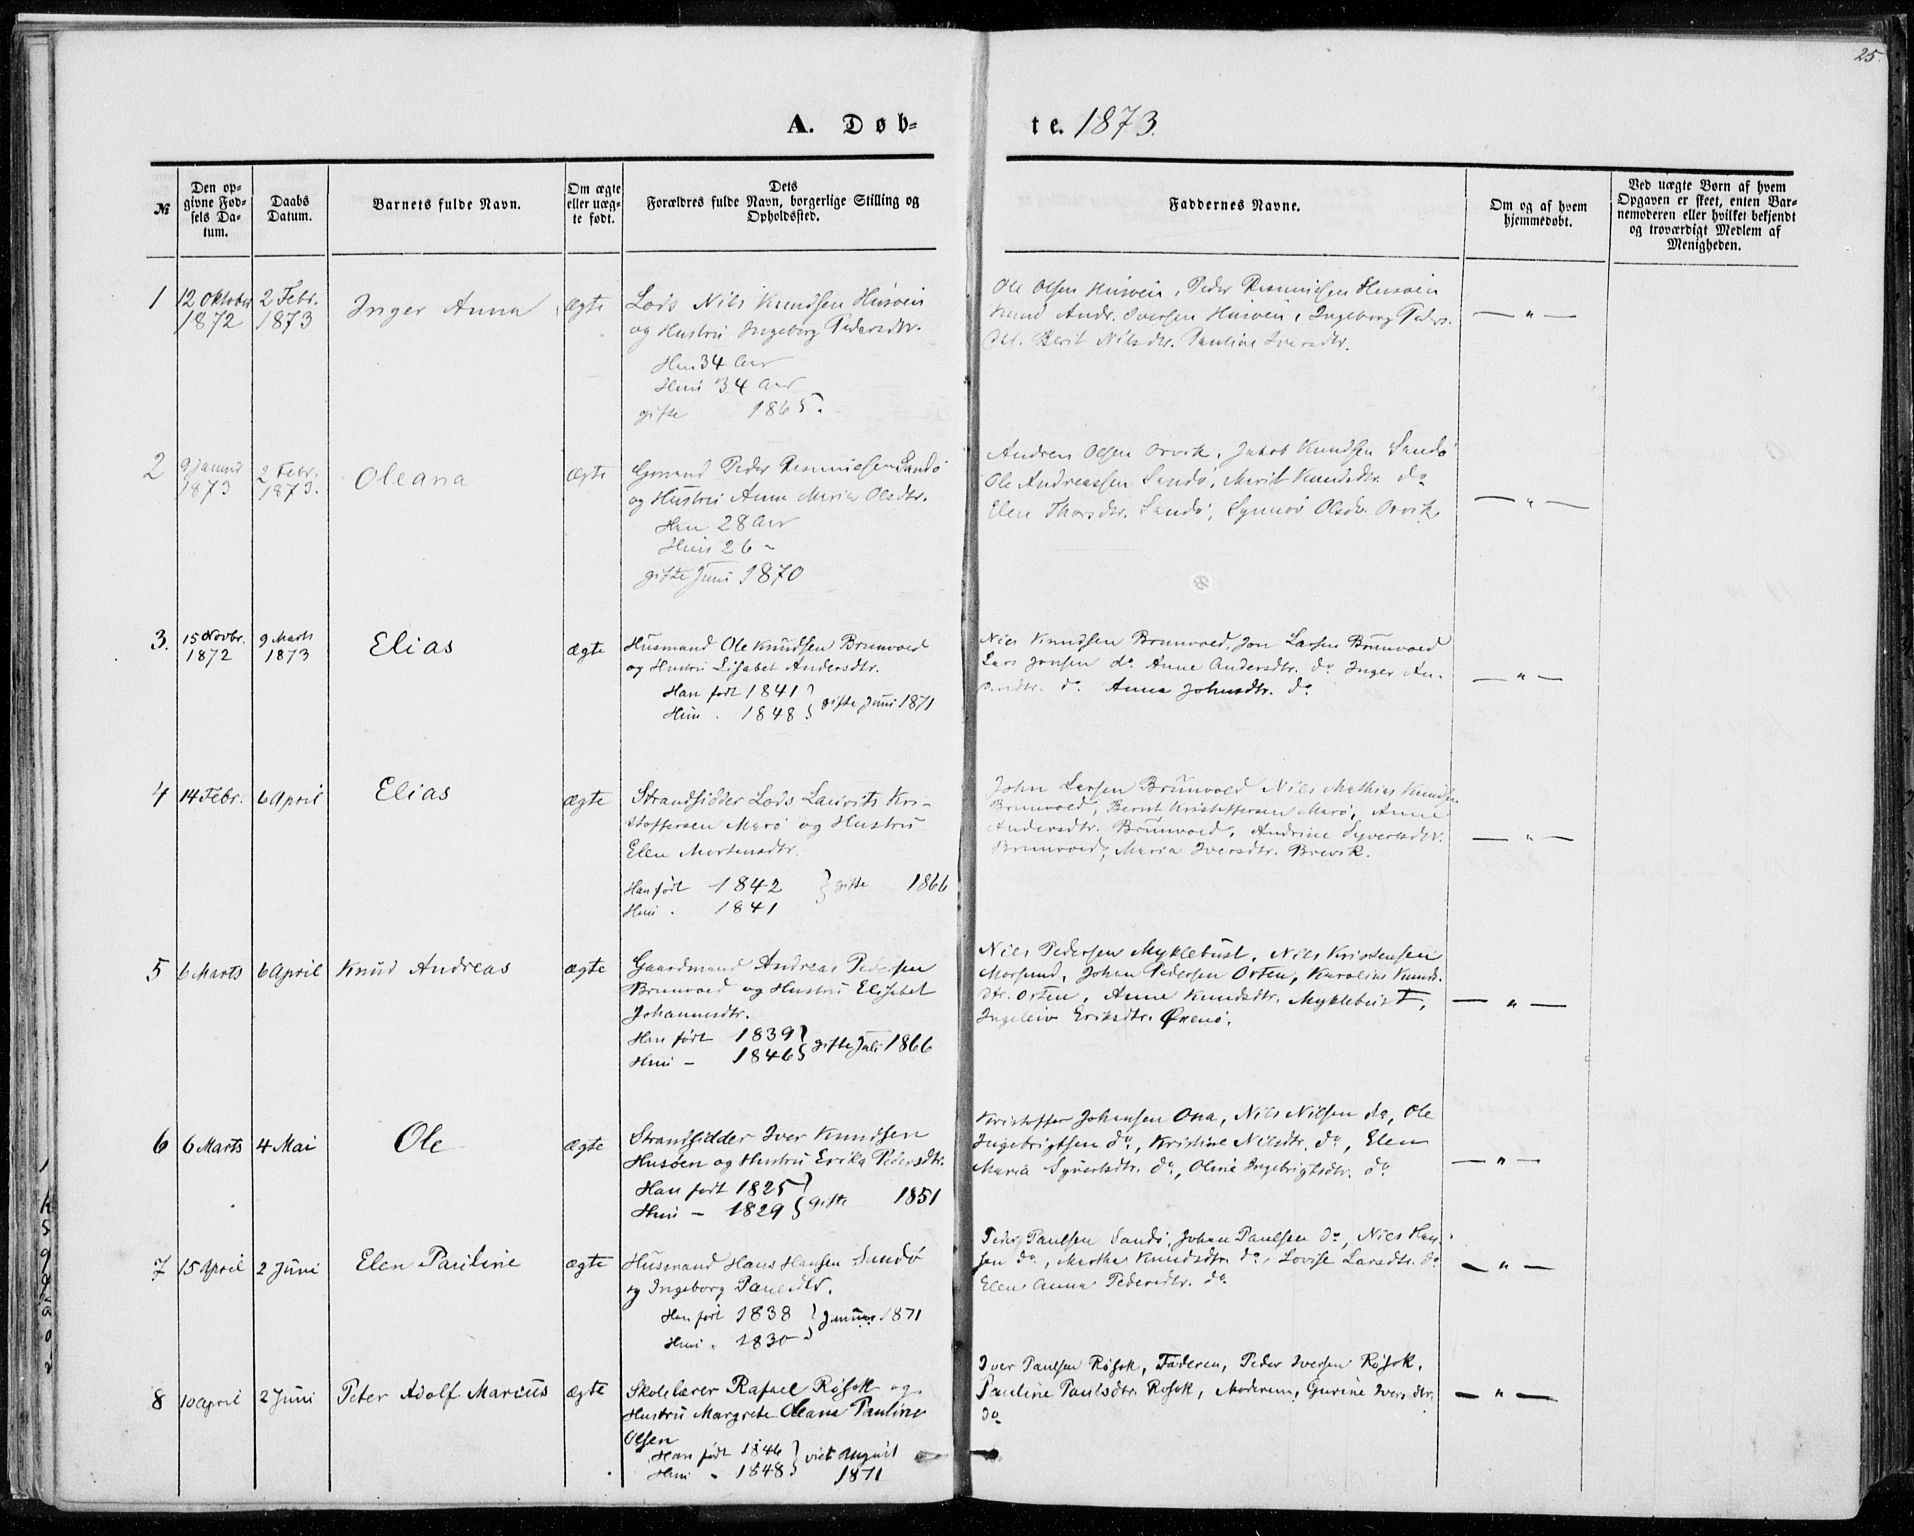 25.
A. Døb-
te. 1873.
№
Den op-
givne Fød-
sels Da-
tum.
Daabs
Datum.
Barnets fulde Navn.
Om ægte
eller uæg-
te født.
Dets
Forældres fulde Navn, borgerlige Stilling og
Opholdssted.
Faddernes Navne.
Om og af hvem
hjemmedøbt.
Ved uægte Børn af hvem
Opgaven er skeet, enten Bar-
nemoderen eller hvilket bekjendt
og troværdigt Medlem af
Menigheden.
1
12 Oktober
1872
2 Febr.
1873
Inger Anna
ægte
Lods Nils Knudsen Husøen
og Hustru Ingeborg Pedersdtr.
Han 34 Aar
Hun 34 Aar
gifte 1865.
Ole Olsen Husøen, Peder Rasmussen Husøen
Knud Andr. Iversen Husøen, Ingeborg Peders-
dtr. Berit Nilsdtr. Pauline Iversdtr.
— " —
2
9 Januar
1873
2 Febr.
1873.
Oleana
ægte
Gaardmand Peder Rasmussen Sandø
og Hustru Anne Maria Olsdtr.
Han 28 Aar
Hun 26 -
gifte Juni 1870
Andreas Olsen Orvik, Jakob Knudsen Sandø
Ole Andreassen Sandø, Marit Knudsdtr. do
Elen Thorsdtr. Sandø, Synnøv Olsdtr. Orvik,
— " —
3.
15 Novbr.
1872
9 Marts
1873
Elias
ægte
Husmand Ole Knudsen Brunvoed
og Hustru Lisabet Andersdtr.
Han født 1841
Hun . 1848 } gifte Juni 1871
Niels Knudsen Brunvoed, Jon Larsen Brunvoed
Lars Jonsen do Anne Andersdtr. do Inger An-
dersdtr. do Anna Johnsdtr. do
— " —
4
14 Febr.
6 April
Elias
ægte
Strandsidder Lods Laurits Kri-
stoffersen Marø og Hustru
Elen Mortensdtr.
Han født 1842 } gifte 1866
Hun . 1841
John Larsen Brunvoed Nils Mathias Knudsen
Brunvoed, Bernt Kristoffersen Marø, Anne
Andersdtr. Brunvoed, Andrine Syvertsdtr.
Brunvoed, Maria Iversdtr. Brevik.
— " —
5
6 Marts
6 April
Knud Andreas
ægte
Gaardmand Andreas Pedersen
Brunvoed og Hustru Elisabet
Johannesdtr.
Han født 1839
Hun - 1846 } gifte Juli 1866
Niels Pedersen Myklebust, Niels Kristensen
Morsund, Johan Pedersen Orten, Karoline Knuds-
dtr. Orten, Anne Knudsdtr. Myklebust,
Ingeleiv Eriksdtr. Øxenø.
— " —
6
6 Marts
4 Mai
Ole
ægte
Strandsidder Iver Knudsen
Husøen og Hustru Erika Pedersdtr.
Han født 1825
Hun - 1829 } gifte 1851
Kristoffer Johansen Ona, Nils Nilsen do, Ole
Ingebrigtsen do, Kristine Nilsdtr. do, Elen
Maria Syvertsdtr. do, Oline Ingebrigtsdtr. do
— " —
7
15 April
2 Juni
Elen Pauline
ægte
Husmand Hans Hansen Sandø
og Ingeborg Paulsdtr.
Han født 1838 } Januar 1871
Hun . 1830
Peder Paulsen Sandø, Johan Paulsen do, Niels Han-
sen do, Marthe Knudsdtr. do, Lovise Larsdtr. do
Elen Anna Pedersdtr. do
— " —
8
10 April
2 Juni
Peter Adolf Marius
ægte
Skolelærer Rafael Røsok og
Hustru Margrete Oleana Pauline
Olsen
Han født 1846 } viet August
Hun . 1848 1871
Iver Paulsen Røsok, Faderen, Peder Iversen Røsok,
Pauline Paulsdtr. Røsok, Moderen, Gurine Iversdtr.
do
— " —